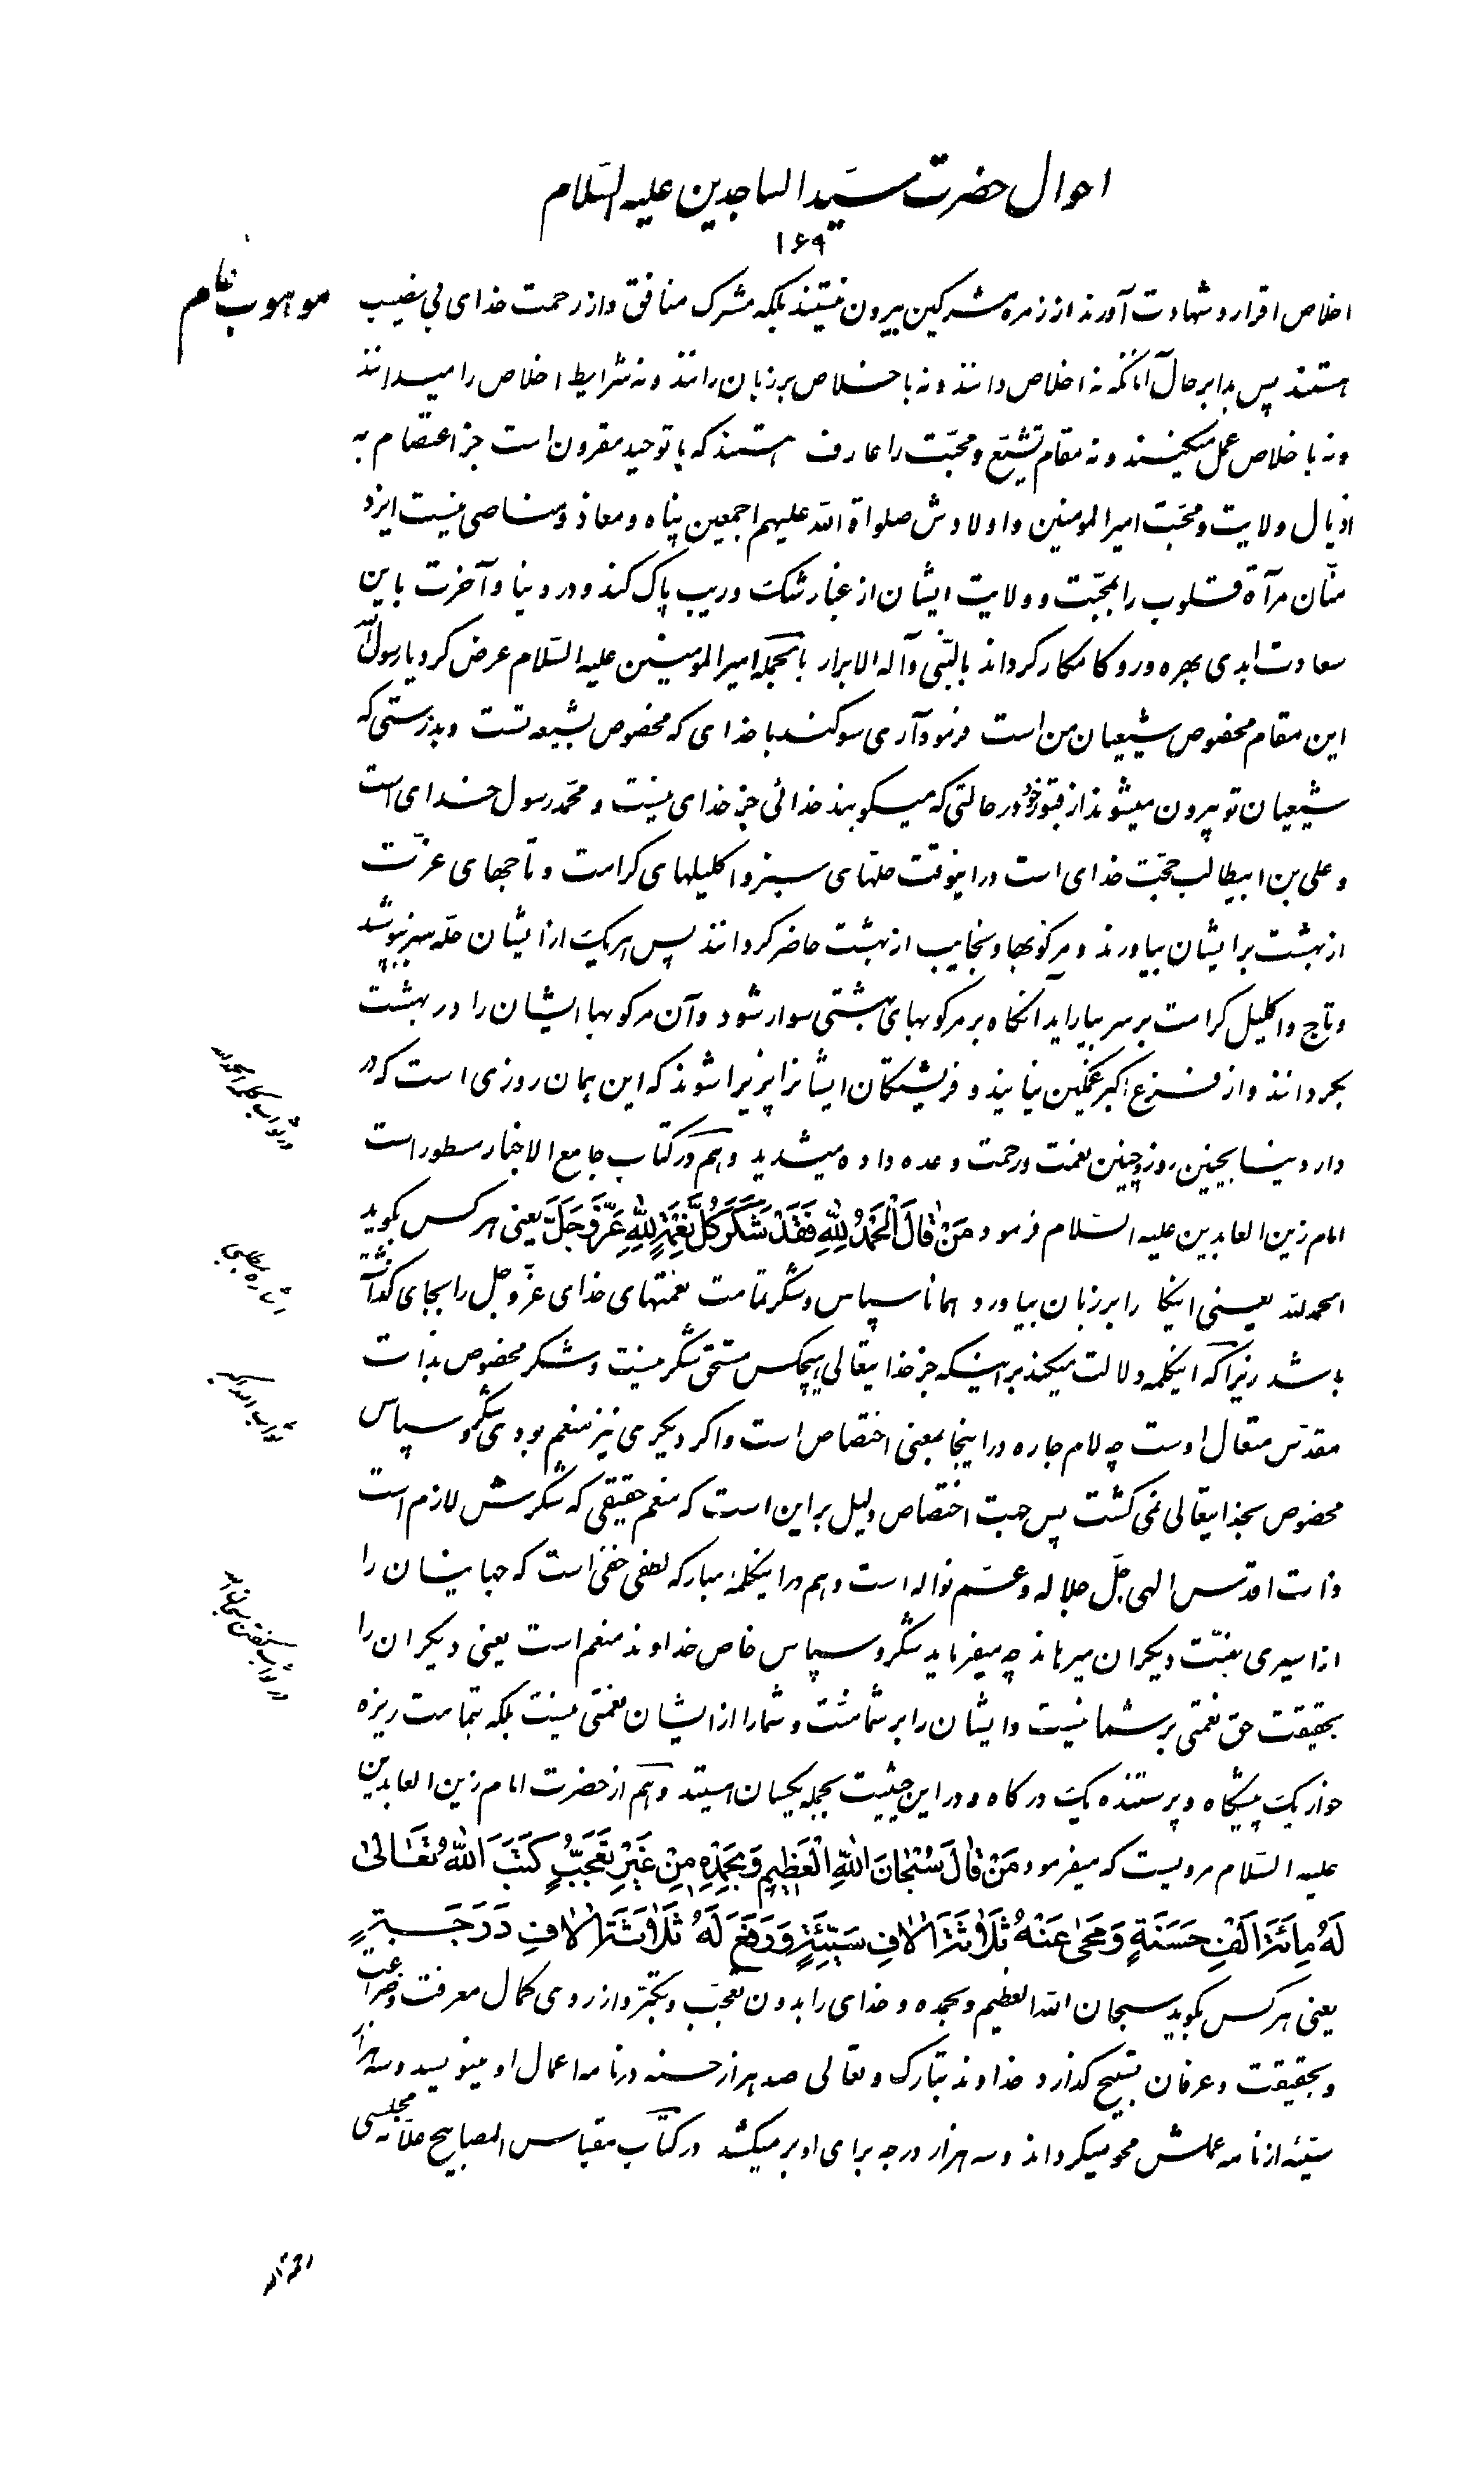 احوال حضرت سید الساجدین علیه السلام
۱۶۹
اخلاص اقرار و شهادت آورند از زمره مشرکین بیرون نیستند بلکه مشرک منافق و از رحمت خدای بی نصیب
هستند پس بدا بر حال آنانکه نه اخلاص دانند و نه باخلاص بر زبان رانند و نه شرایط اخلاص را میدانند
و نه باخلاص عمل میکنند و نه مقام تشیّع و محبّت را عارف هستند که با توحید مقرون است جز اعتصام به
اذیال ولایت و محبّت امیرالمومنین و اولادش صلواة الله علیهم اجمعین پناه و معاذ و مناصی نیست ایزد
منّان مرآة قلوب را بمحبّت و ولایت ایشان از غبار شک و ریب پاک کند و در دنیا و آخرت باین
سعادت ابدی بهره ور و کامکار گرداند بالنّبی و آله الابرار بالجمله امیرالمومنین علیه السّلام عرض کرد یا رسول الله
این مقام مخصوص شیعیان من است فرمود آری سوگند با خدای که مخصوص بشیعه تست و بدرستی که
شیعیان تو بیرون میشوند از قبور خود در حالتی که میگویند خدائی جز خدای نیست و محمّد رسول خدای است
و علی بن ابیطالب حجّت خدای است در اینوقت حلّهای سبز و اکلیلهای کرامت و تاجهای عزّت
از بهشت برایشان بیاورند و مرکوبها و نجایب از بهشت حاضر گردانند پس هریک از ایشان حلّه سبز بپوشد
و تاج و اکلیل کرامت بر سر بیاراید آنگاه بر مرکوبهای بهشتی سوار شود و آن مرکوبها ایشان را در بهشت
بگردانند و از فزع اکبر غمگین نیایند و فرشتگان ایشانرا پذیرا شوند که این همان روزی است که در
دار دنیا بچنین روز و چنین نعمت و رحمت وعده داده میشدید و هم در کتاب جامع الاخبار مسطور است
امام زین العابدین علیه السّلام فرمود مَنْ قالَ الْحَمْدُ لِلّهِ فَقَدْ شَکَرَ کُلَّ نِعْمَةٍ لِلّهِ عَزَّ وَجَلَّ یعنی هر کس بگوید
الحمد لله یعنی اینکلمه را بر زبان بیاورد همانا سپاس و شکر تمامت نعمتهای خدای عزّ و جلّ را بجای گذاشته
باشد زیرا که اینکلمه دلالت میکند بر اینکه جز خدایتعالی هیچکس مستحق شکر نیست و شکر مخصوص بذات
مقدّس متعال اوست چه لام جاره در اینجا بمعنی اختصاص است و اگر دیگری نیز منعم بودی شکر و سپاس
مخصوص بخدایتعالی نمی گشت پس جهت اختصاص دلیل بر این است که منعم حقیقی که شکرش لازم است
ذات اقدس الهی جلّ جلاله و عمّ نواله است و هم در اینکلمه مبارکه لطفی خفی است که جهانیان را
از اسیری بمنّت دیگران میرهاند چه میفرماید شکر و سپاس خاص خداوند منعم است یعنی دیگران را
بحقیقت حق نعمتی بر شما نیست و ایشان را بر شما منّت و شما را از ایشان نعمتی نیست بلکه بتمامت ریزه
خوار یک پیشگاه و پرستنده یک درگاه و در این حیثیت بجمله یکسان هستید و هم از حضرت امام زین العابدین
علیه السّلام مرویست که میفرمود مَنْ قالَ سُبْحانَ اللهِ الْعَظیمِ وَبِحَمْدِهِ مِنْ غَیْرِ تَعَجُّبٍ کَتَبَ اللهُ تَعالی
لَهُ مِائَةَ اَلْفِ حَسَنَةٍ وَمَحی عَنْهُ ثَلاثَةَ الافِ سَیِّئَةٍ وَرَفَعَ لَهُ ثَلاثَةَ الافِ دَرَجَةٍ
یعنی هر کس بگوید سبحان الله العظیم و بحمده و خدای را بدون تعجّب و تکبّر و از روی کمال معرفت و ضراعت
و بحقیقت و عرفان تسبیح گذارد خداوند تبارک و تعالی صد هزار حسنه در نامه اعمال او مینویسد و سه هزار
سیّئه از نامه عملش محو میگرداند و سه هزار درجه برای او بر میکشد در کتاب مقباس المصابیح علّامه مجلسی
در ثواب کلمه الحمد لله
در ثواب گفتن سبحان الله